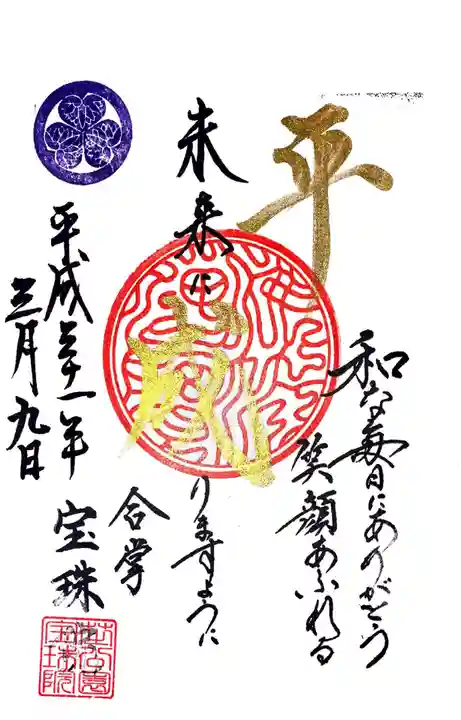 平和な毎日にありがとう
笑顔あふれる
未来に成りますように
合掌
平成三十一年 宝珠
三月九日
芝公園
宝珠院